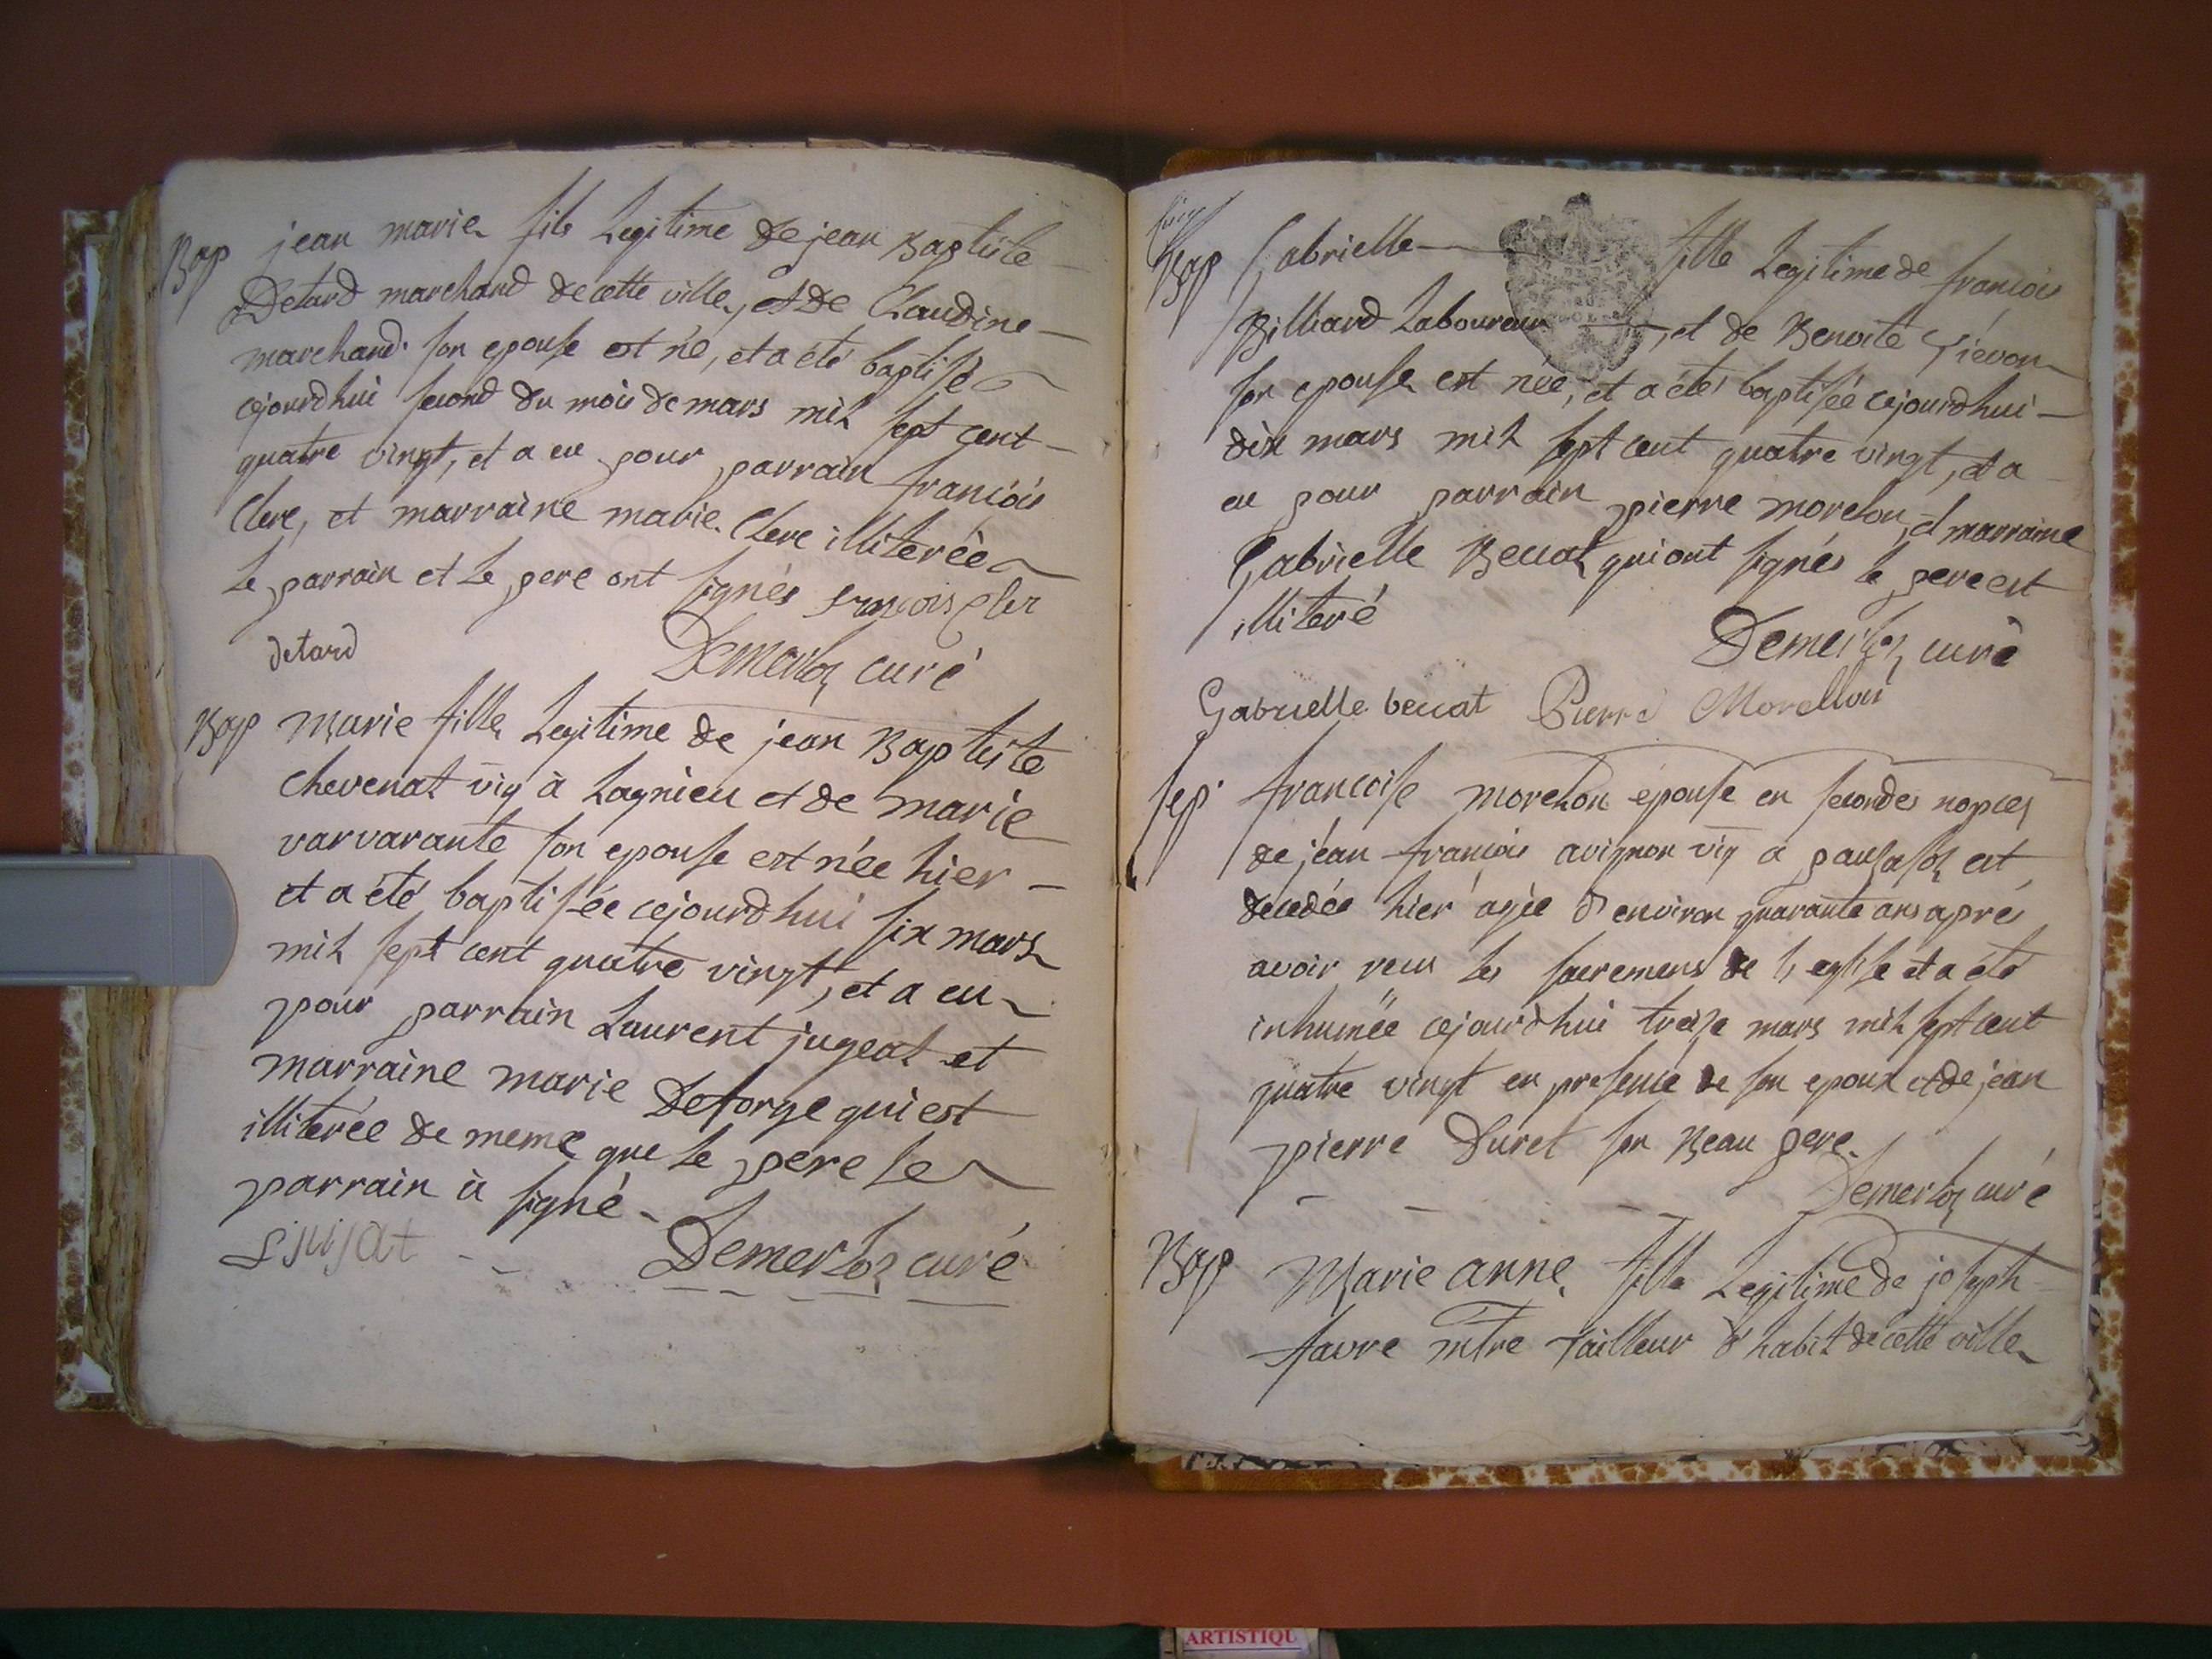 Bap jean marie fils Legitime de jean Baptiste
Detard marchand de cette ville, et de Claudine
marchand son epouse est né, et a été baptisé
cejourdhui second du mois de mars mil sept cent
quatre vingt, et a eu pour parrain francois
Clere, et marraine marie Clere illiterée
Le parrain et le pere ont signés francois Cler
detard Demerloz curé
Bap Marie fille Legitime de jean Baptiste
Chevenat vig à Lagnieu et de marie
varvarante son epouse est née hier
et a été baptisée cejourdhui six mars
mil sept cent quatre vingt, et a eu
pour parrain Laurent jugeat et
marraine marie Deforge qui est
illiterée de meme que le pere le
parrain à signé
L jujat Demerloz curé
Bap Gabrielle fille Legitime de francois
Billiard Laboureur, et de Benoite
son epouse est née, et a été baptisée cejourdhui
dix mars mil sept cent quatre vingt, et a
eu pour parrain pierre morelon, et marraine
Gabrielle Beccat qui ont signés le pere est
illiteré Demerloz curé
Gabrielle beccat Pierre Morellon
sep. francoise morelon épouse en secondes nopces
de jean francois avignon vig a est
decedée hier agée d'environ quarante ans après
avoir reçu les sacremens de l'eglise et a été
inhumée cejourdhui treize mars mil sept cent
quatre vingt en presence de son epoux et de jean
pierre Duret son Beau pere.
Demerloz curé
Bap Marie anne fille Legitime de joseph
favre mtre Tailleur d'habit de cette ville
ARTISTIQU